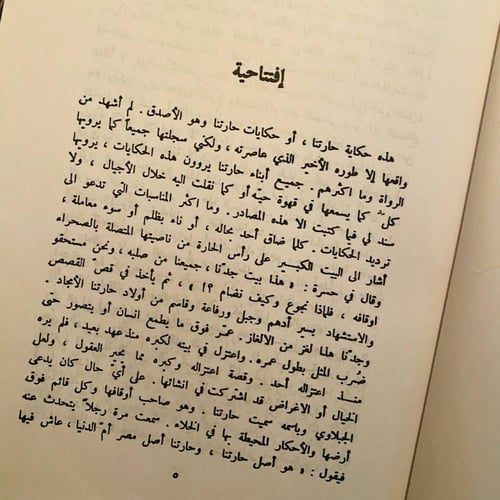 إفتتاحية
هذه حكاية حارتنا ، أو حكايات حارتنا وهو الأصدق . لم أشهد من
واقعها إلا طوره الأخير الذي عاصرته ، ولكني سجلتها جميعاً كما يرويها
الرواة وما اكثرهم . جميع أبناء حارتنا يروون هذه الحكايات ، يرويها
كلٌ كما يسمعها في قهوة حيّه أو كما نقلت اليه خلال الأجيال ، ولا
سند لي فيما كتبت الا هذه المصادر . وما اكثر المناسبات التي تدعو الى
ترديد الحكايات . كلما ضاق أحد بحاله ، أو ناء بظلم أو سوء معاملة ،
أشار الى البيت الكبير على رأس الحارة من ناصيتها المتصلة بالصحراء
وقال في حسرة : « هذا بيت جدنا ، جميعنا من صلبه ، ونحن مستحقو
اوقافه ، فلماذا نجوع وكيف نضام ؟! » ، ثم يأخذ في قصّ القصص
والاستشهاد بسير أدهم وجبل ورفاعة وقاسم من أولاد حارتنا الأمجاد .
وجدّنا هذا لغز من الالغاز . عمّر فوق ما يطمع انسان أو يتصور حتّى
ضُرب المثل بطول عمره . واعتزل في بيته لكبره منذ عهد بعيد ، فلم يره
منذ اعتزاله أحد . وقصة اعتزاله وكبره مما يحير العقول ، ولعل
الخيال أو الاغراض قد اشتركت في انشائها . على أيّ حال كان يدعى
الجبلاوي وباسمه سميت حارتنا . وهو صاحب أوقافها وكل قائم فوق
أرضها والأحكار المحيطة بها في الخلاء . سمعت مرة رجلاً يتحدث عنه
فيقول : « هو أصل حارتنا ، وحارتنا أصل مصر أمّ الدنيا ، عاش فيها
٥